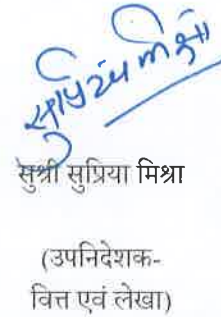 सुप्रिया मिश्रा
सुश्री सुप्रिया मिश्रा
(उपनिदेशक-
वित्त एवं लेखा)